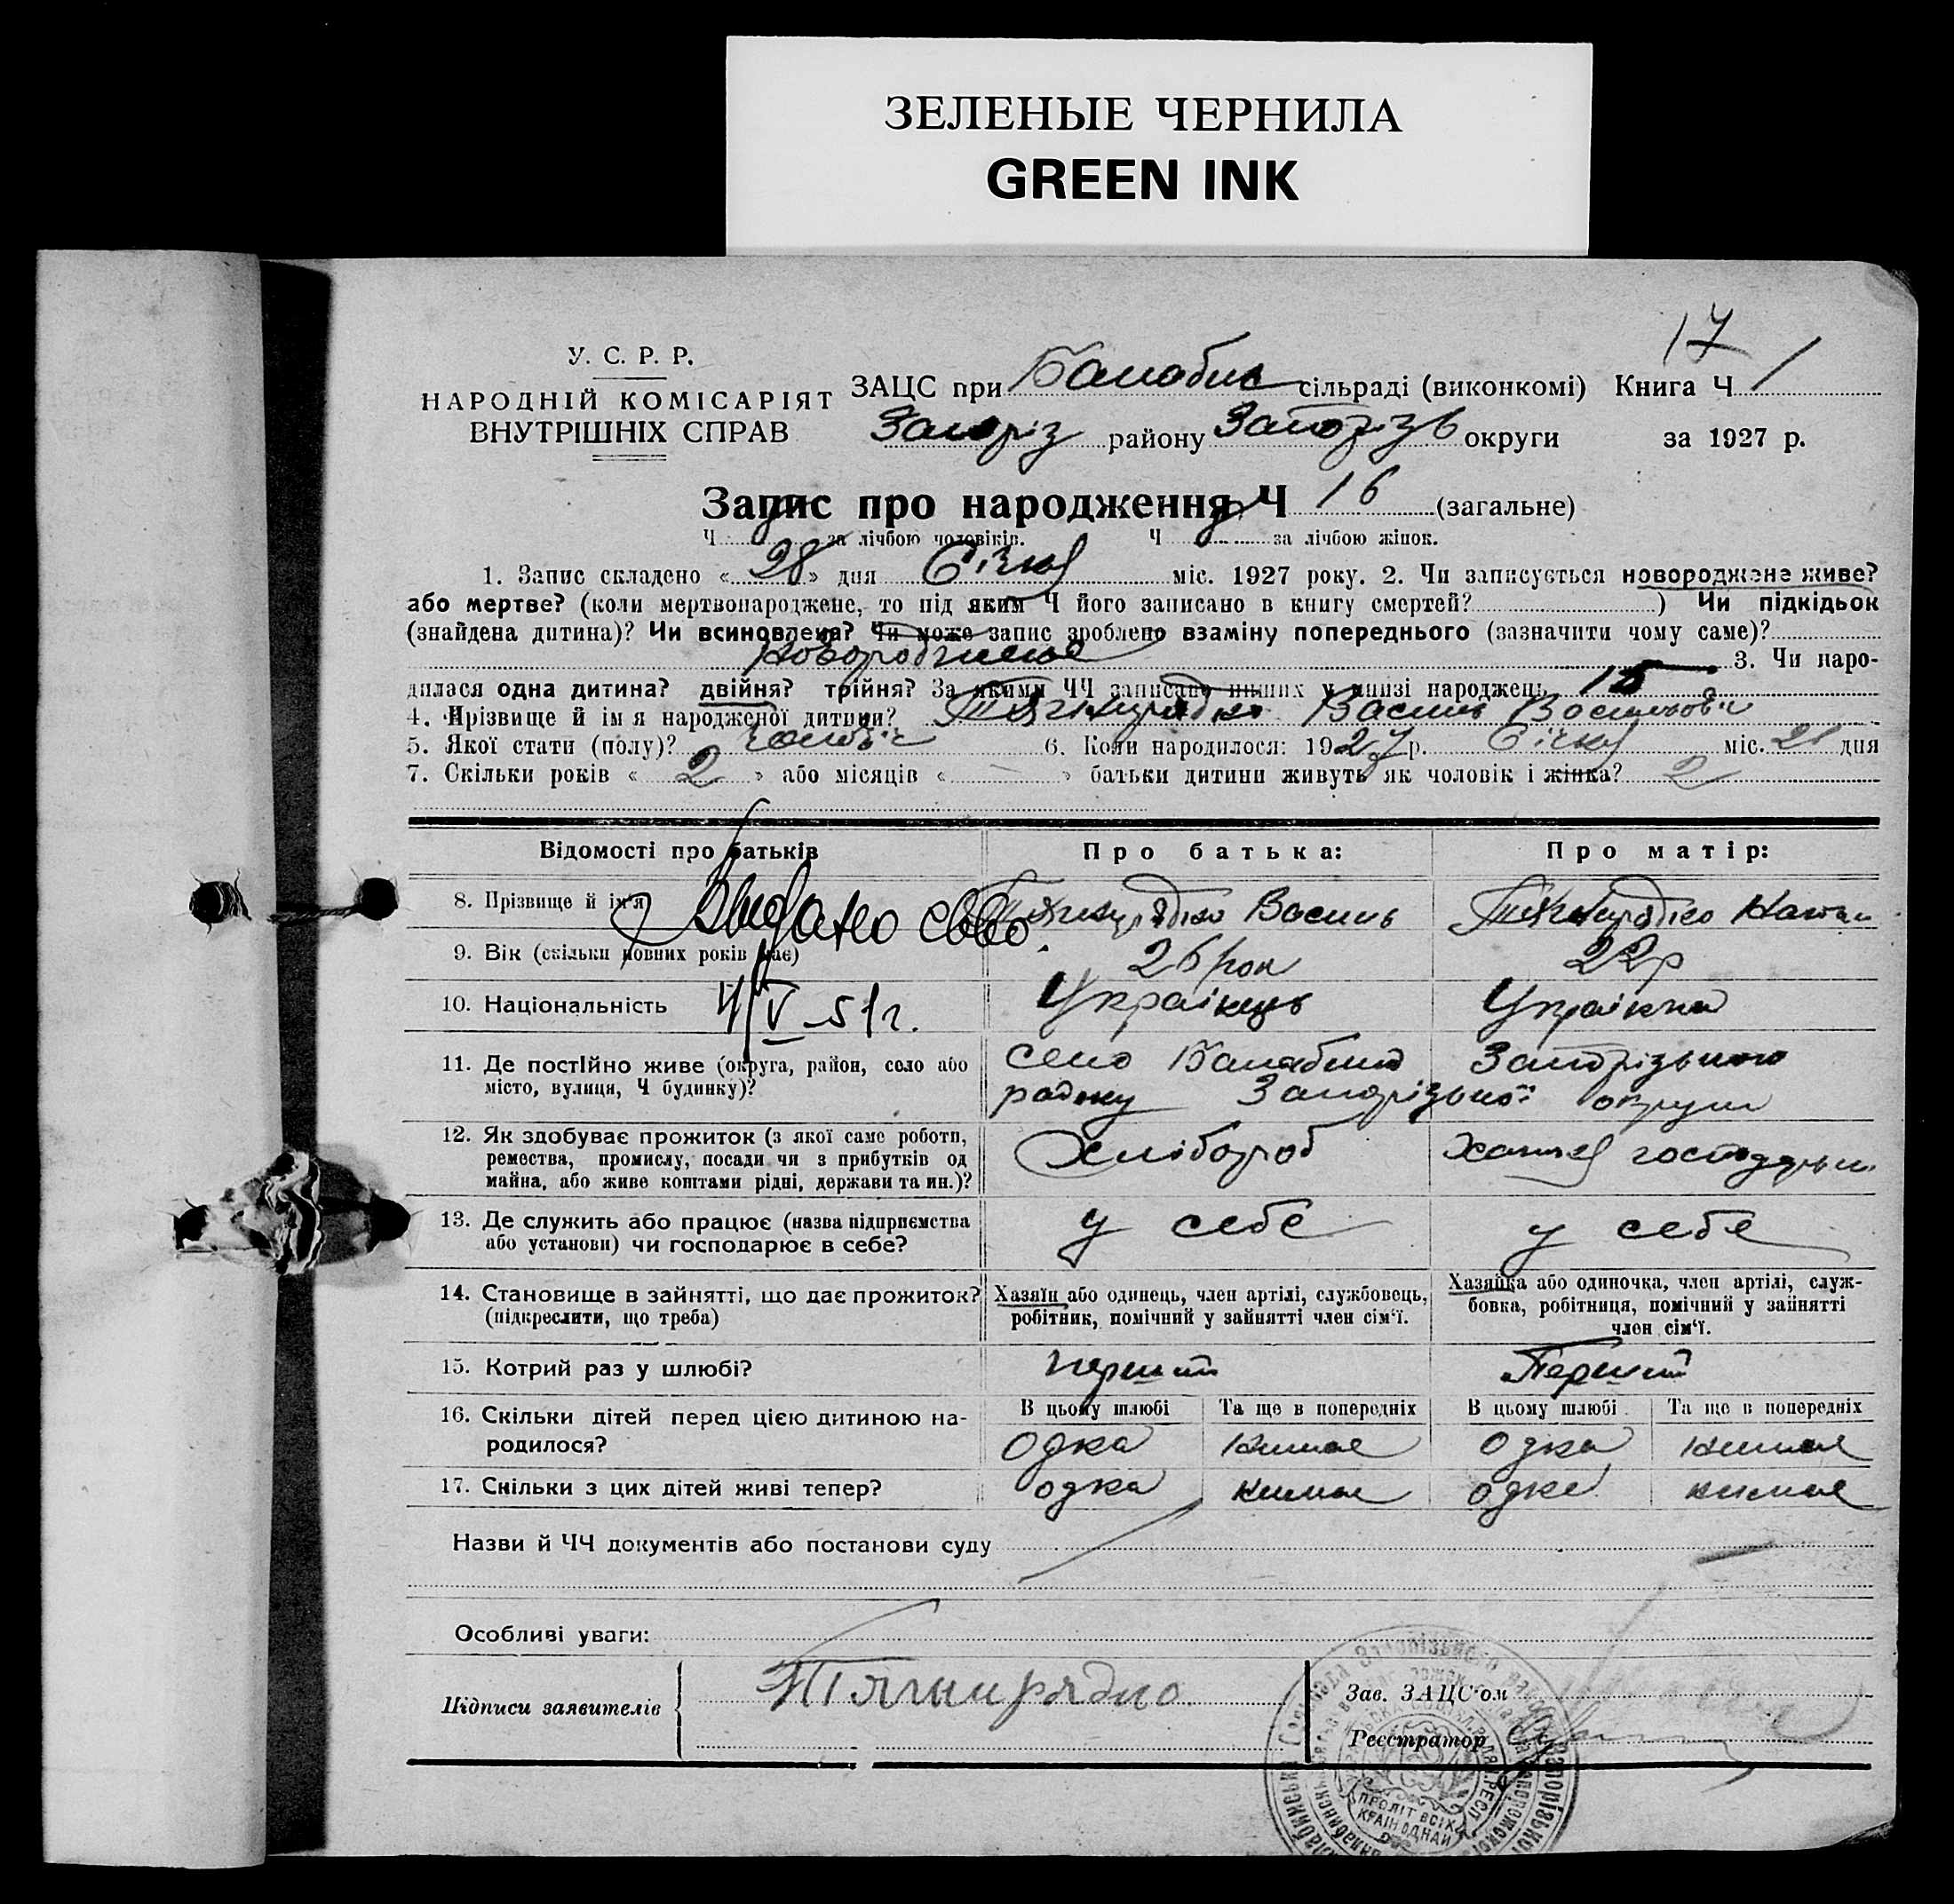 ЗЕЛЕНЫЕ ЧЕРНИЛА
GREEN INK
17
У. С. Р. Р.
НАРОДНІЙ КОМІСАРІЯТ
ВНУТРІШНІХ СПРАВ
ЗАЦС при Балабин сільраді (виконкомі) Книга Ч 1
Запоріз району Запорізь округи за 1927 р.
Запис про народження Ч 16 (загальне)
Ч за лічбою чоловіків. Ч за лічбою жінок.
1. Запис складено «28» дня Січня міс. 1927 року. 2. Чи записується новороджене живе?
або мертве? (коли мертвонароджене, то під яким Ч його записано в книгу смертей? ) Чи підкідьок
(знайдена дитина)? Чи всиновлена? Чи може запис зроблено взаміну попереднього (зазначити чому саме)?
новороджене 3. Чи наро-
дилася одна дитина? двійня? трійня? За якими ЧЧ записано инших у книзі народжень 15
4. Прізвище й ім я народженої дитини? Тягнирядно Василь Васильовіч
5. Якої стати (полу)? чоловіч 6. Коли народилося: 1927 р. Січня міс. 21 дня
7. Скільки років «2» або місяців « — » батьки дитини живуть як чоловік і жінка? 2
Відомості про батьків Про батька: Про матір:
8. Прізвище й ім'я Тягнирядно Василь Тягнирядно
Выдано св-во.
9. Вік (скільки повних років має) 26 рок 22 р
10. Національність Українець Українка
4/V-51 г.
11. Де постійно живе (округа, район, село або село Балабино Запорізького
місто, вулиця, Ч будинку)? району Запорізької округи
12. Як здобуває прожиток (з якої саме роботи,
ремества, промислу, посади чи з прибутків од Хлібороб хатня господарьн
майна, або живе коштами рідні, держави та ин.)?
13. Де служить або працює (назва підприємства у себе у себе
або установи) чи господарює в себе?
14. Становище в зайнятті, що дає прожиток? Хазяїн або одинець, член артілі, службовець, Хазяйка або одиночка, член артілі, служ-
(підкреслити, що треба) робітник, помічний у зайнятті член сім'ї. бовка, робітниця, помічний у зайнятті
член сім'ї.
15. Котрий раз у шлюбі? перший Перший
16. Скільки дітей перед цією дитиною на- В цьому шлюбі Та ще в попередніх В цьому шлюбі Та ще в попередніх
родилося? одна немає одна немає
17. Скільки з цих дітей живі тепер? одна немає одна немає
Назви й ЧЧ документів або постанови суду
Особливі уваги:
Підписи заявителів Тягнирядно Зав. ЗАЦС'ом
Реєстратор
ПРОЛІТ ВСІХ
КРАЇН ЄДНАЙ